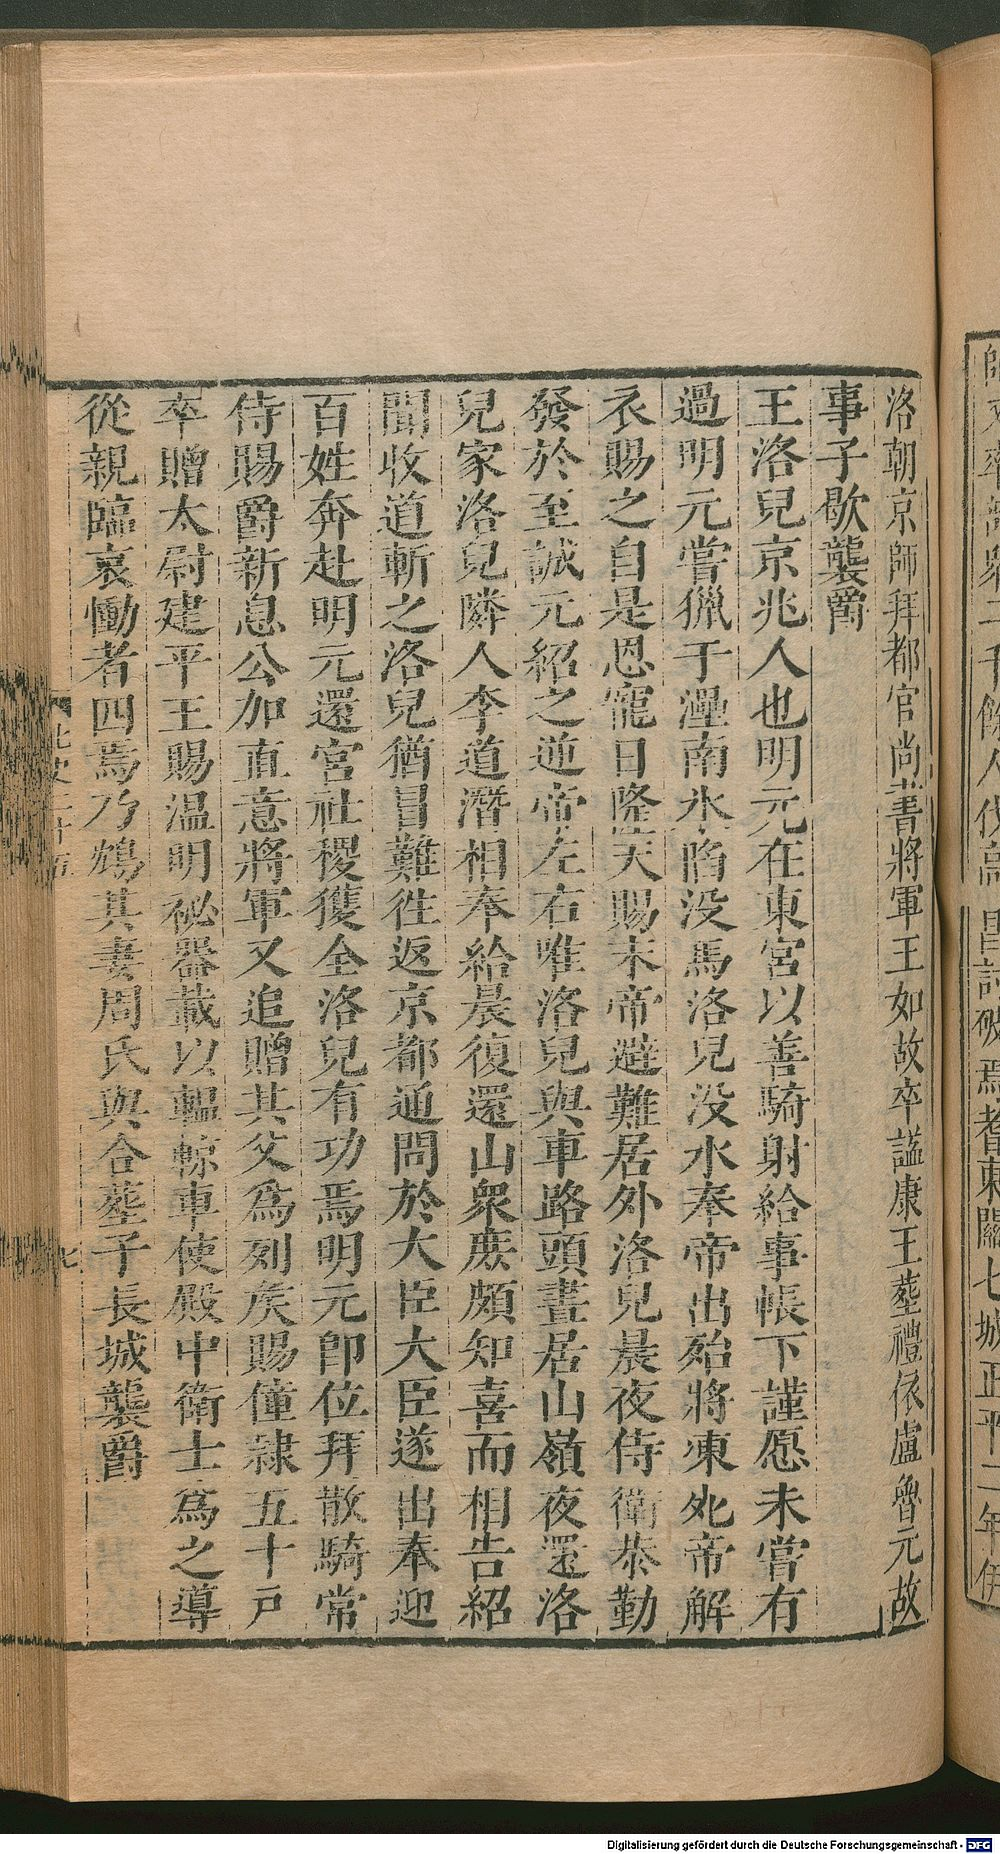 洛朝京師拜都官尚書將軍王如故卒謚康王葬禮依盧魯元故
事子歇襲爵
王洛兒京兆人也明元在東宮以善騎射給事帳下謹愿未嘗有
過明元嘗獵于㶟南氷陷没馬洛兒没水奉帝出殆將凍死帝解
衣賜之自是恩寵日隆天賜末帝避難居外洛兒晨夜侍衛恭勤
發於至誠元紹之逆帝左右唯洛兒與車路頭晝居山嶺夜還洛
兒家洛兒隣人李道潛相奉給晨復還山衆庶頗知喜而相告紹
聞收道斬之洛兒猶冒難徃返京都通問於大臣大臣遂出奉迎
百姓奔赴明元還宮社稷獲全洛兒有功焉明元即位拜散騎常
侍賜爵新息公加直意將軍又追贈其父爲列矦賜僮隷五十戸
卒贈太尉建平王賜温明祕器載以轀輬車使殿中衛士爲之導
從親臨哀慟者四焉乃鴆其妻周氏與合葬子長城襲爵
北史二十五
七
Digitalisierung gefördert durch die Deutsche Forschungsgemeinschaft - DFG